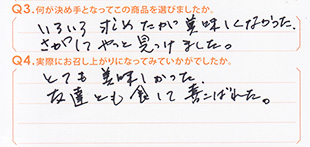 Q3.何が決め手となってこの商品を選びましたか。
いろいろ求めたが美味しくなかった。
さがしてやっと見つけました。
Q4.実際にお召し上がりになってみていかがでしたか。
とても美味しかった。
友達とも食して喜こばれた。